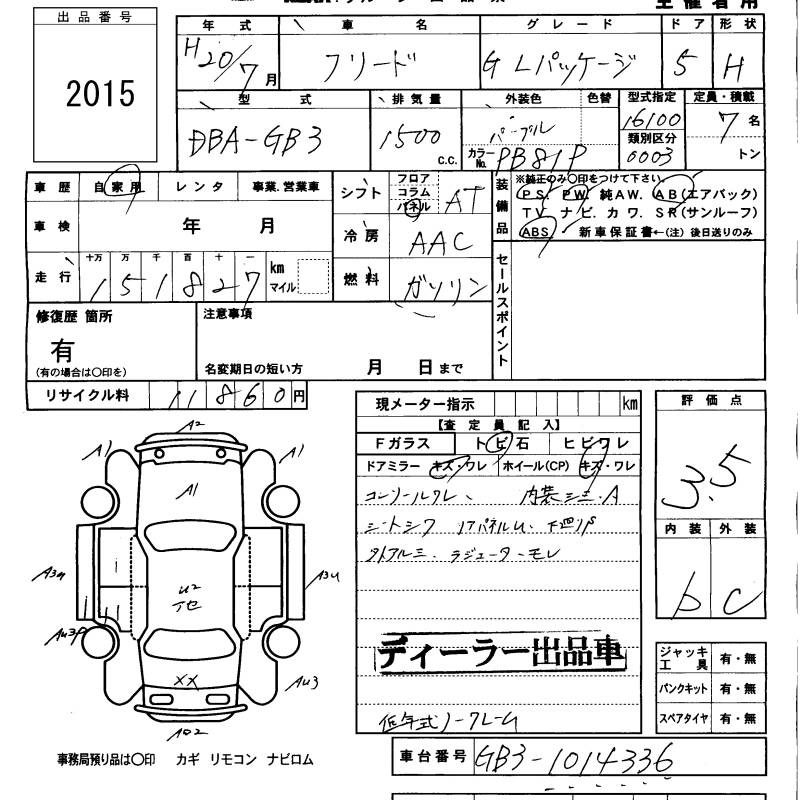 出品番号
2015
年式 車名 グレード ドア 形状
H20/7月 フリード G Lパッケージ 5 H
型式 排気量 外装色 色替 型式指定 定員・積載
DBA-GB3 1500 c.c. パープル 16100 7名
カラーNo. PB81P 類別区分 0003 トン
車歴 自家用 レンタ 事業.営業車
シフト フロア コラム パネル AT
装備品 ※純正のみ〇印をつけて下さい。
PS. PW. 純AW. AB(エアバック)
TV. ナビ. カワ. SR(サンルーフ)
ABS 新車保証書←(注)後日送りのみ
車検 年 月
冷房 AAC
走行 十万 万 千 百 十 一
151827 km マイル
燃料 ガソリン
セールスポイント
修復歴 箇所
有
(有の場合は〇印を)
注意事項
名変期日の短い方 月 日まで
リサイクル料 11860円
現メーター指示 km
【査定員記入】
Fガラス トビ石 ヒビワレ
ドアミラー キズ・ワレ ホイール(CP) キズ・ワレ
コンソールワレ、 内装シミ・A
シートシワ リアパネルU、下廻りP
タイアルミ. ラジエーターモレ
ディーラー出品車
低年式ノークレーム
評価点
3.5
内装 外装
b C
A2
A1 A1
A1
U2
A3U
A43
XX
ジャッキ工具 有・無
パンクキット 有・無
スペアタイヤ 有・無
事務局預り品は〇印 カギ リモコン ナビロム
車台番号 GB3-1014336